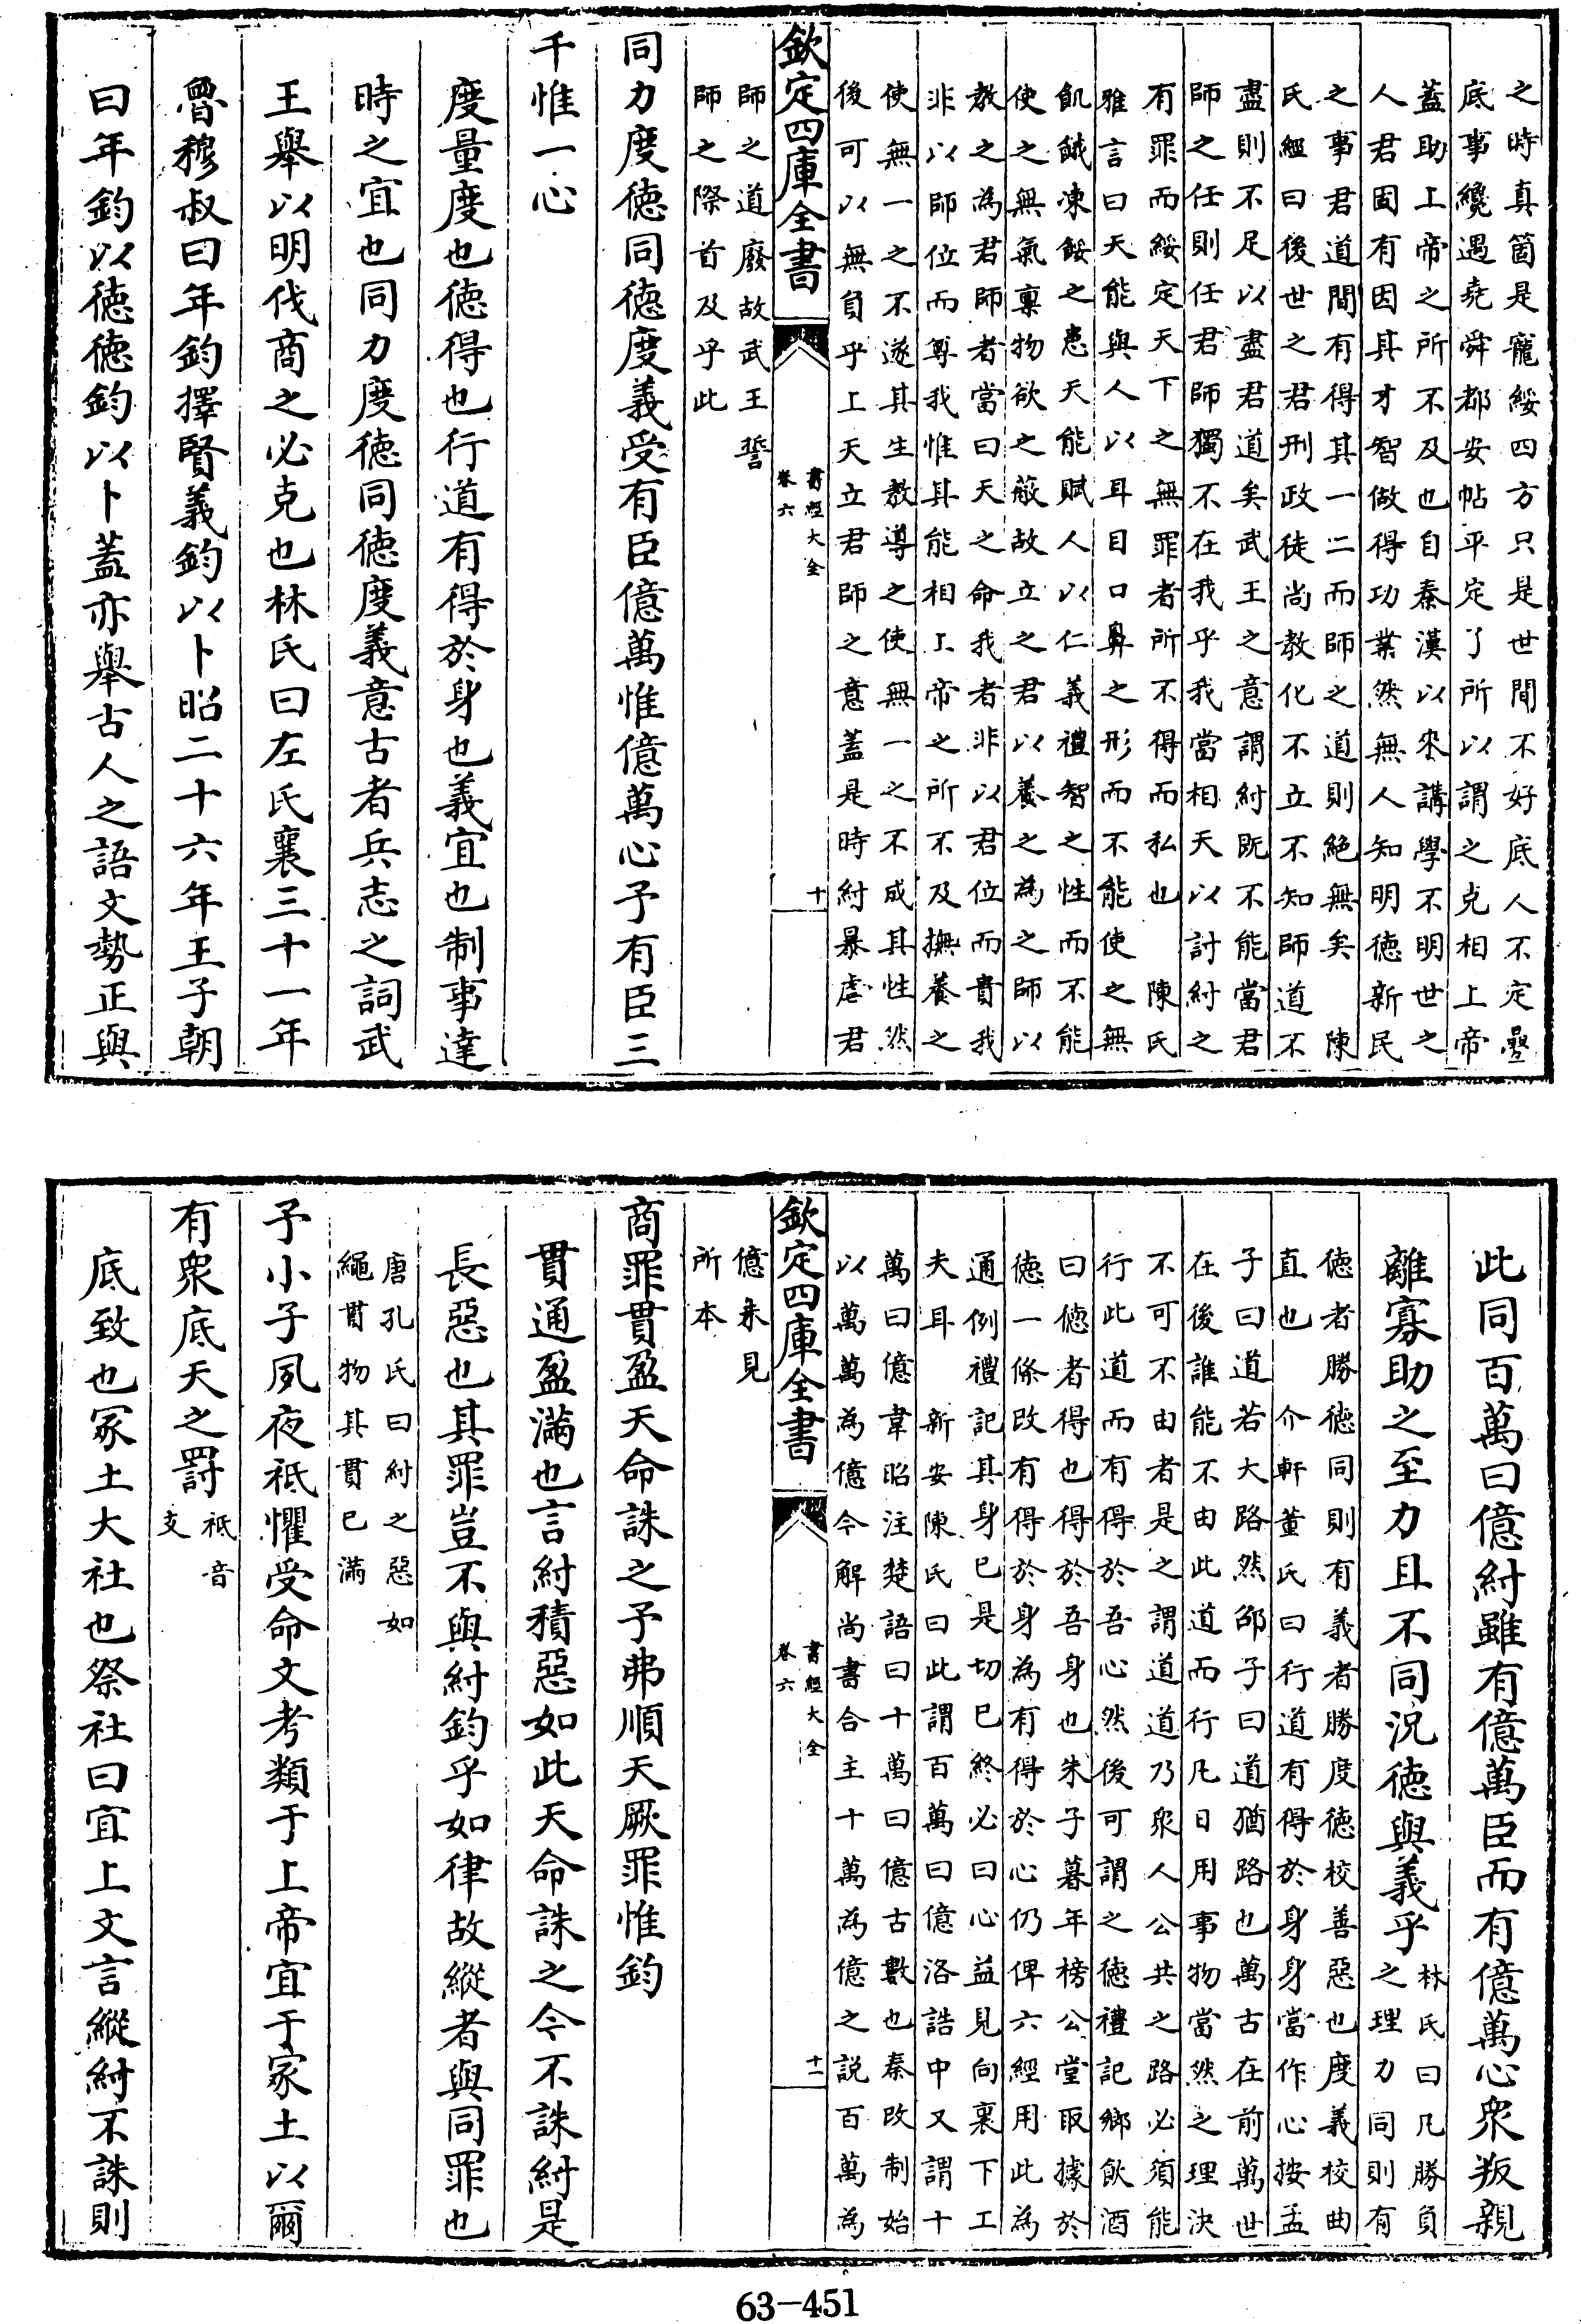 之時真箇是寵綏四方只是世間不好底人不定疊
底事纔遇堯舜都安帖平定了所以謂之克相上帝
蓋助上帝之所不及也自秦漢以來講學不明世之
人君固有因其才智做得功業然無人知明徳新民
之事君道間有得其一二而師之道則絶無矣 陳
氏經曰後世之君刑政徒尚教化不立不知師道不
盡則不足以盡君道矣武王之意謂紂既不能當君
師之任則任君師獨不在我乎我當相天以討紂之
有罪而綏定天下之無罪者所不得而私也 陳氏
雅言曰天能與人以耳目口鼻之形而不能使之無
飢餓凍餒之患天能賦人以仁義禮智之性而不能
使之無氣稟物欲之蔽故立之君以養之為之師以
教之為君師者當曰天之命我者非以君位而貴我
非以師位而尊我惟其能相上帝之所不及撫養之
使無一之不遂其生教導之使無一之不成其性然
後可以無負乎上天立君師之意蓋是時紂暴虐君
欽定四庫全書
書經大全
卷六
十
師之道廢故武王誓
師之際首及乎此
同力度徳同徳度義受有臣億萬惟億萬心予有臣三
千惟一心
度量度也徳得也行道有得於身也義宜也制事達
時之宜也同力度徳同徳度義意古者兵志之詞武
王舉以明伐商之必克也林氏曰左氏襄三十一年
魯穆叔曰年鈞擇賢義鈞以卜昭二十六年王子朝
曰年鈞以徳徳鈞以卜蓋亦舉古人之語文勢正與
此同百萬曰億紂雖有億萬臣而有億萬心衆叛親
離寡助之至力且不同況徳與義乎
林氏曰凡勝負
之理力同則有
徳者勝徳同則有義者勝度徳校善惡也度義校曲
直也 介軒董氏曰行道有得於身身當作心按孟
子曰道若大路然邵子曰道猶路也萬古在前萬世
在後誰能不由此道而行凡日用事物當然之理決
不可不由者是之謂道道乃衆人公共之路必須能
行此道而有得於吾心然後可謂之徳禮記鄉飲酒
曰徳者得也得於吾身也朱子暮年榜公堂取據於
徳一條改有得於身為有得於心仍俾六經用此為
通例禮記其身已是切己終必曰心益見向裏下工
夫耳 新安陳氏曰此謂百萬曰億洛誥中又謂十
萬曰億韋昭注楚語曰十萬曰億古數也秦改制始
以萬萬為億今解尚書合主十萬為億之説百萬為
欽定四庫全書
書經大全
卷六
十一
億未見
所本
商罪貫盈天命誅之予弗順天厥罪惟鈞
貫通盈滿也言紂積惡如此天命誅之今不誅紂是
長惡也其罪豈不與紂鈞乎如律故縱者與同罪也
唐孔氏曰紂之惡如
繩貫物其貫已滿
予小子夙夜祗懼受命文考類于上帝宜于冢土以爾
有衆底天之罰
祗音
支
底致也冢土大社也祭社曰宜上文言縱紂不誅則
63-451